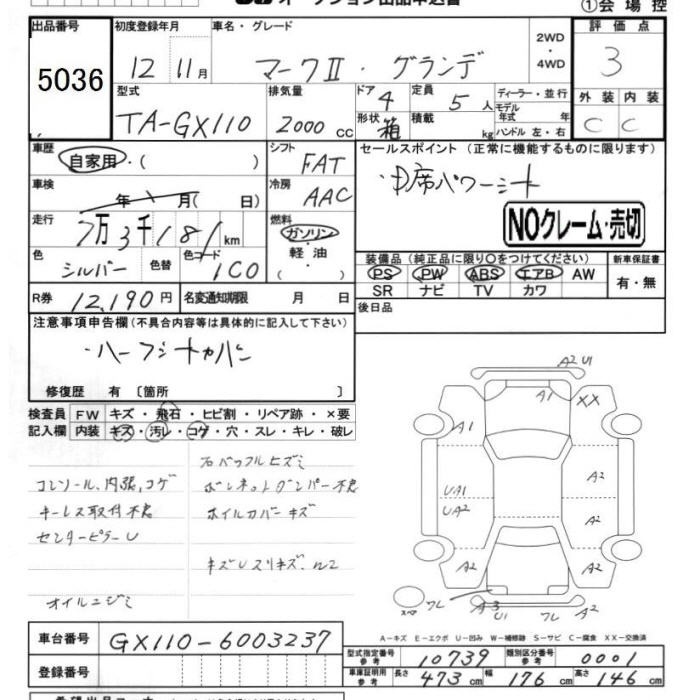 ①会 場 控
出品番号
初度登録年月
車名・グレード
2WD
・
4WD
評 価 点
5036
12 11月
マークⅡ・グランデ
3
型式
排気量
ドア 4
定員 5 人
ディーラー・並行
外 装 内 装
TA-GX110
2000 cc
形状 箱
積載 kg
モデル年式 年
ハンドル 左・右
C C
車歴
自家用・( )
シフト
FAT
セールスポイント (正常に機能するものに限ります)
車検
年 月( 日)
冷房
AAC
・中席パワーシート
走行
7万3千181km
燃料
ガソリン
・
軽・油
NOクレーム・売切
色
シルバー
色替
色コード
1C0
装備品 (純正品に限り○をつけてください)
新車保証書
PS PW ABS エアB AW
有・無
SR ナビ TV カワ
R券 12,190円
名変通知期限 月 日
後日品
注意事項申告欄(不具合内容等は具体的に記入して下さい)
・ハーフシートカバー
修復歴 有 〔箇所 〕
検査員
FW
キズ・飛石・ヒビ割・リペア跡・×要
記入欄
内装
キズ・汚レ・コゲ・穴・スレ・キレ・破レ
コンソール、内張、コゲ
ボンネットダンパー不良
キーレス取付不良
ホイルカバーキズ
センターピラーU
オイルニジミ
A2 U1
A1
XX
A1
UA1
UA2
A2
A2
A2
A2
スペア
ワレ
A3
U1
ワレ
A2
A-キズ E-エクボ U-凹み W-補修跡 S-サビ C-腐食 XX-交換済
車台番号
GX110-6003237
型式指定番号
参考
10739
類別区分番号
参考
0001
登録番号
車庫証明用
参考
長さ 473cm
幅 176cm
高さ 146cm